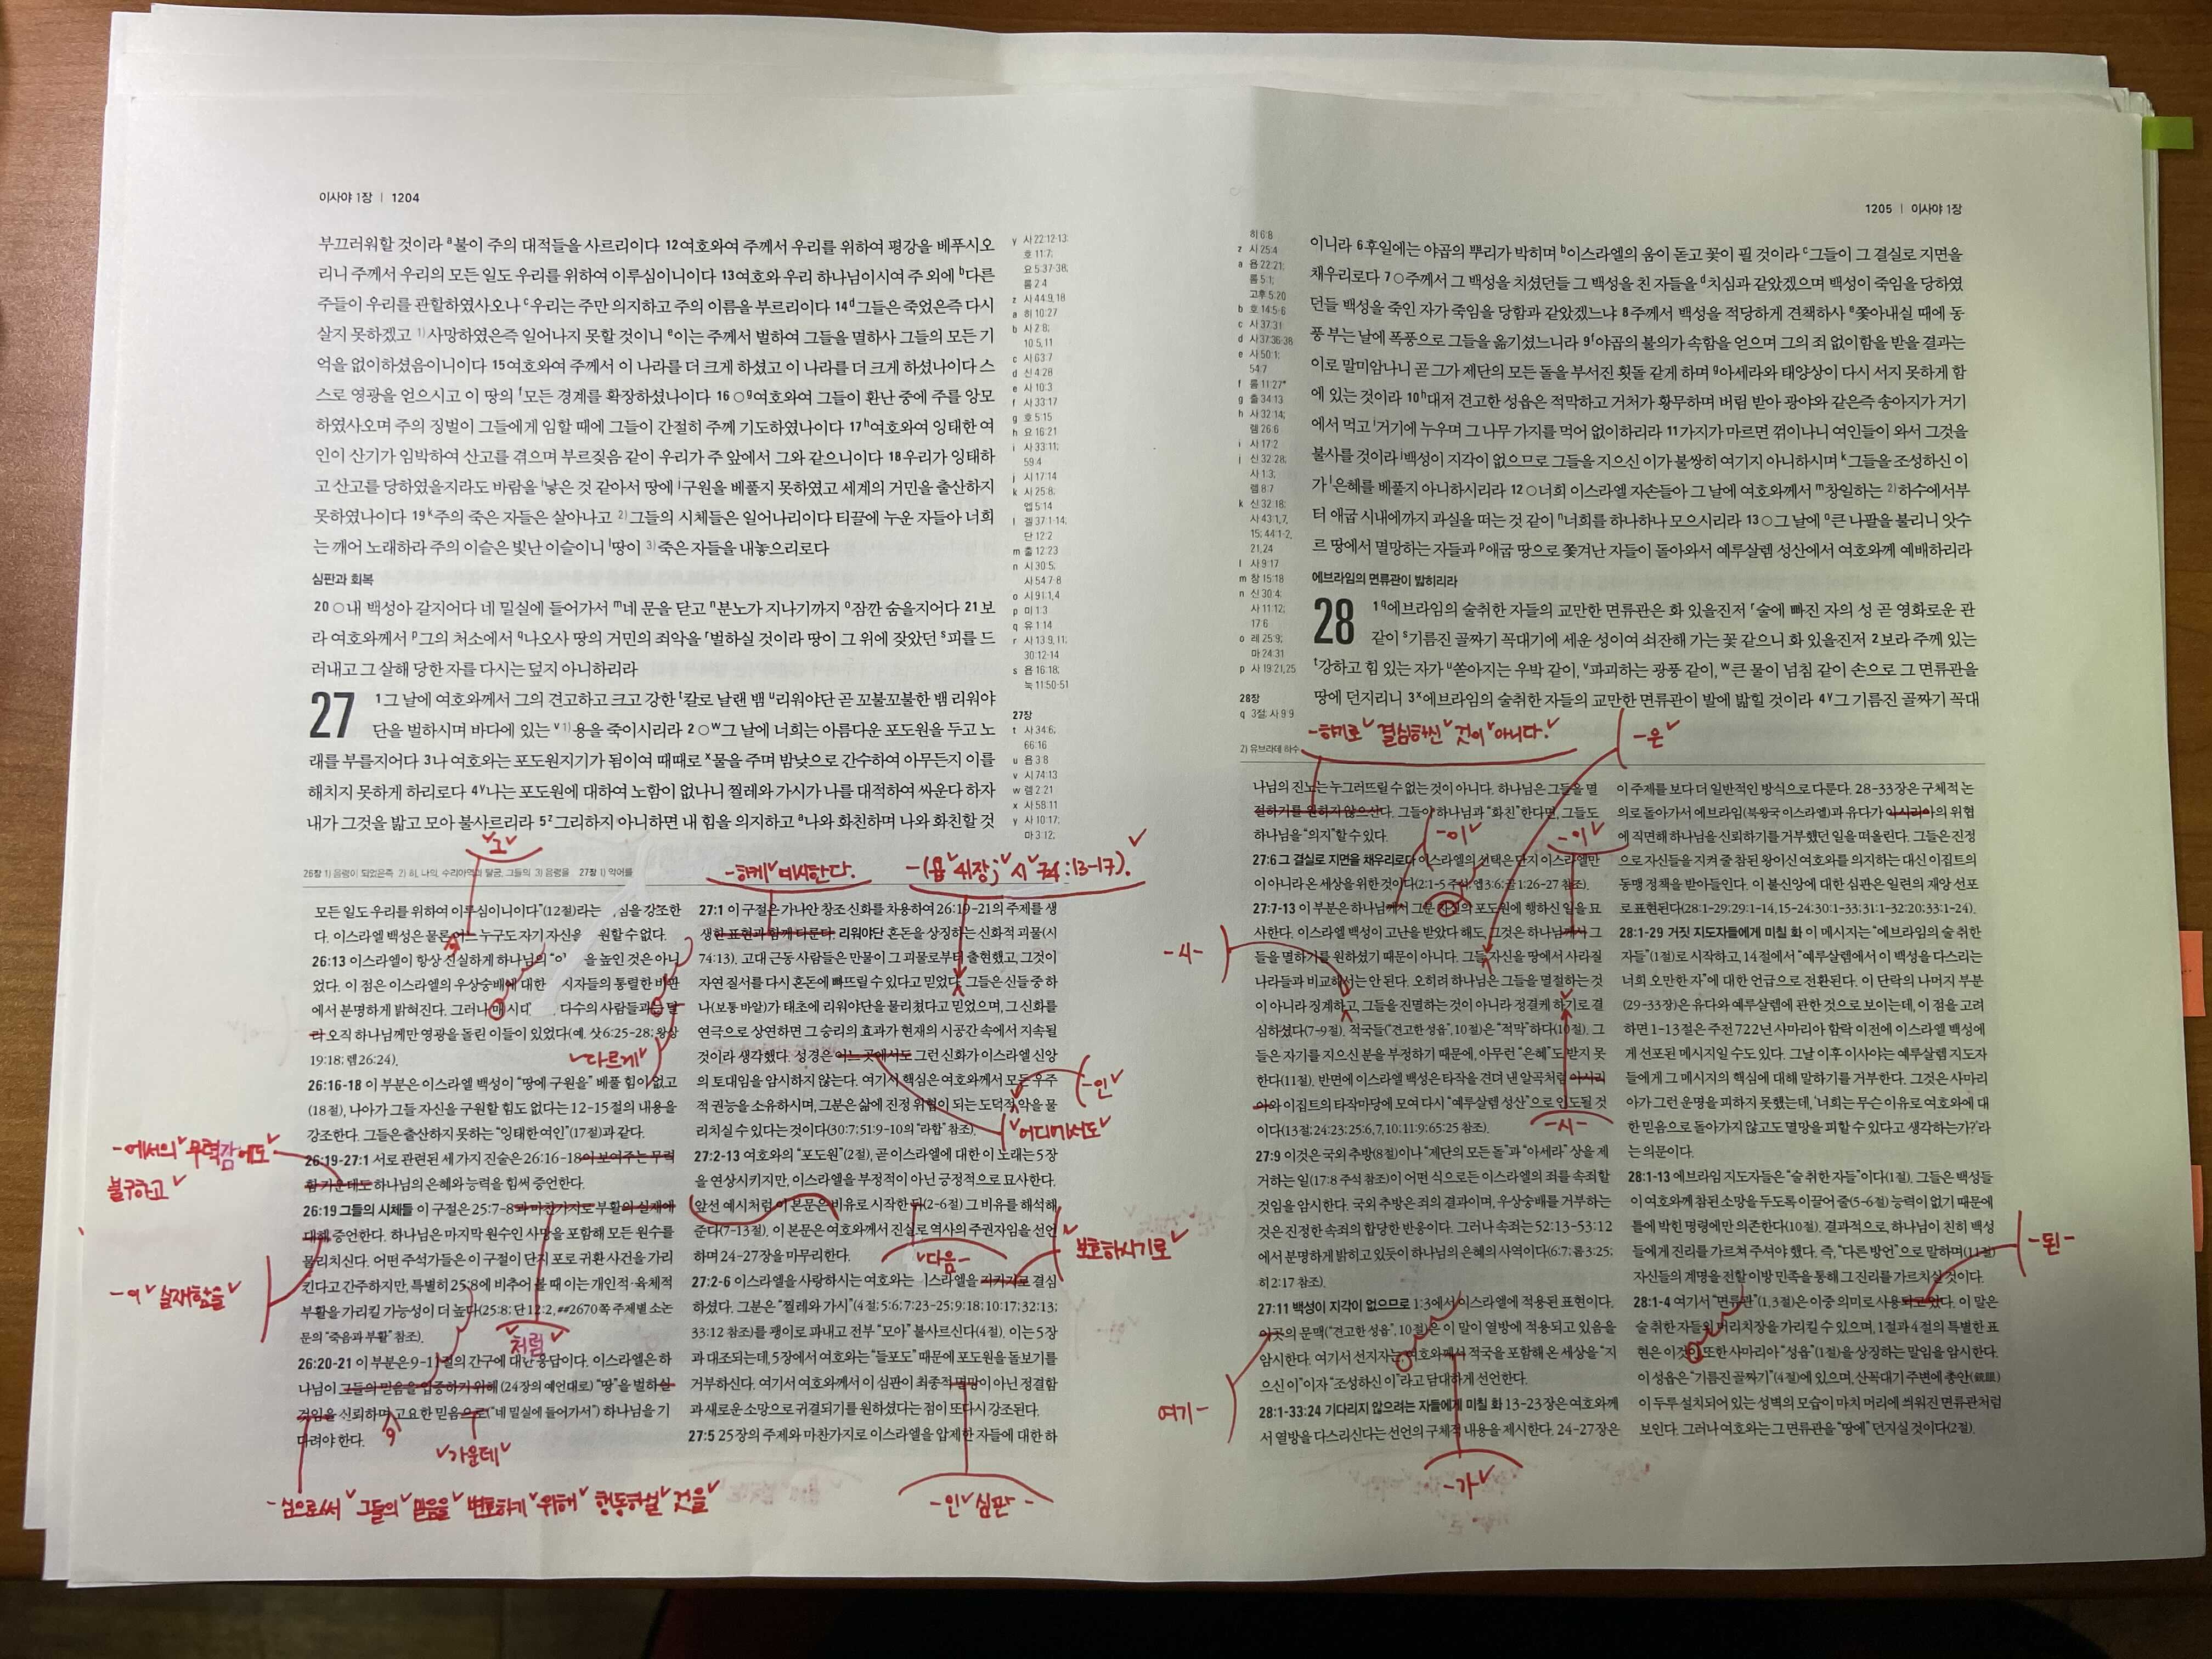 이사야 1장 | 1204
부끄러워할 것이라 ᵃ불이 주의 대적들을 사르리이다 12 여호와여 주께서 우리를 위하여 평강을 베푸시오
리니 주께서 우리의 모든 일도 우리를 위하여 이루심이니이다 13 여호와 우리 하나님이시여 주 외에 ᵇ다른
주들이 우리를 관할하였사오나 ᶜ우리는 주만 의지하고 주의 이름을 부르리이다 14 ᵈ그들은 죽었은즉 다시
살지 못하겠고 1)사망하였은즉 일어나지 못할 것이니 ᵉ이는 주께서 벌하여 그들을 멸하사 그들의 모든 기
억을 없이하셨음이니이다 15 여호와여 주께서 이 나라를 더 크게 하셨고 이 나라를 더 크게 하셨나이다 스
스로 영광을 얻으시고 이 땅의 ᶠ모든 경계를 확장하셨나이다 16 ○ᵍ여호와여 그들이 환난 중에 주를 앙모
하였사오며 주의 징벌이 그들에게 임할 때에 그들이 간절히 주께 기도하였나이다 17 ʰ여호와여 잉태한 여
인이 산기가 임박하여 산고를 겪으며 부르짖음 같이 우리가 주 앞에서 그와 같으니이다 18 우리가 잉태하
고 산고를 당하였을지라도 바람을 ⁱ낳은 것 같아서 땅에 ʲ구원을 베풀지 못하였고 세계의 거민을 출산하지
못하였나이다 19 ᵏ주의 죽은 자들은 살아나고 2)그들의 시체들은 일어나리이다 티끌에 누운 자들아 너희
는 깨어 노래하라 주의 이슬은 빛난 이슬이니 ˡ땅이 3)죽은 자들을 내놓으리로다
심판과 회복
20 ○내 백성아 갈지어다 네 밀실에 들어가서 ᵐ네 문을 닫고 ⁿ분노가 지나기까지 ᵒ잠깐 숨을지어다 21 보
라 여호와께서 ᵖ그의 처소에서 ᑫ나오사 땅의 거민의 죄악을 ʳ벌하실 것이라 땅이 그 위에 잦았던 ˢ피를 드
러내고 그 살해 당한 자를 다시는 덮지 아니하리라
27 1 그 날에 여호와께서 그의 견고하고 크고 강한 ᵗ칼로 날랜 뱀 ᵘ리워야단 곧 꼬불꼬불한 뱀 리워야
단을 벌하시며 바다에 있는 ᵛ 1)용을 죽이시리라 2 ○ʷ그 날에 너희는 아름다운 포도원을 두고 노
래를 부를지어다 3 나 여호와는 포도원지기가 됨이여 때때로 ˣ물을 주며 밤낮으로 간수하여 아무든지 이를
해치지 못하게 하리로다 4 ʸ나는 포도원에 대하여 노함이 없나니 찔레와 가시가 나를 대적하여 싸운다 하자
내가 그것을 밟고 모아 불사르리라 5 ᶻ그리하지 아니하면 내 힘을 의지하고 ᵃ나와 화친하며 나와 화친할 것
y 사 22:12-13;
호 11:7;
요 5:37-38;
롬 2:4
z 사 44:9,18
a 히 10:27
b 사 2:8;
10:5,11
c 사 63:7
d 신 4:28
e 사 10:3
f 사 33:17
g 호 5:15
h 요 16:21
i 사 33:11;
59:4
j 시 17:14
k 사 25:8;
엡 5:14
l 겔 37:1-14;
단 12:2
m 출 12:23
n 시 30:5;
사 54:7-8
o 시 91:1,4
p 미 1:3
q 유 1:14
r 사 13:9,11;
30:12-14
s 욥 16:18;
눅 11:50-51
27장
t 사 34:6;
66:16
u 욥 3:8
v 시 74:13
w 렘 2:21
x 사 58:11
y 사 10:17;
마 3:12;
그
-하게 묘사한다.
-(욥 41장; 시 74:13-17).
26장 1) 음령이 되었은즉 2) 히, 나의. 수리아역과 탈굼, 그들의 3) 음령을 27장 1) 악어를
모든 일도 우리를 위하여 이루심이니이다”(12절)라는 심을 강조한
다. 이스라엘 백성은 물론 어느 누구도 자기 자신을 원할 수 없다.
26:13 이스라엘이 항상 신실하게 하나님의 을 높인 것은 아니
었다. 이 점은 이스라엘의 우상숭배에 대한 지자들의 통렬한 비판
에서 분명하게 밝혀진다. 그러나 매 시대 다수의 사람들과는 달
리 오직 하나님께만 영광을 돌린 이들이 있었다(예, 삿 6:25-28; 왕상
19:18; 렘 26:24).
다르게
26:16-18 이 부분은 이스라엘 백성이 “땅에 구원을” 베풀 힘이 없고
(18절), 나아가 그들 자신을 구원할 힘도 없다는 12-15절의 내용을
강조한다. 그들은 출산하지 못하는 “잉태한 여인”(17절)과 같다.
-에서의 무력감에도
불구하고
26:19-27:1 서로 관련된 세 가지 진술은 26:16-18이 보여주는 무력
함 가운데도 하나님의 은혜와 능력을 힘써 증언한다.
26:19 그들의 시체들 이 구절은 25:7-8과 마찬가지로 부활의 실재에
대해 증언한다. 하나님은 마지막 원수인 사망을 포함해 모든 원수를
물리치신다. 어떤 주석가들은 이 구절이 단지 포로 귀환 사건을 가리
킨다고 간주하지만, 특별히 25:8에 비추어 볼 때 이는 개인적·육체적
부활을 가리킬 가능성이 더 높다(25:8; 단 12:2, ##2670쪽 주제별 소논
문의 “죽음과 부활” 참조).
-이 실재함을
처럼
26:20-21 이 부분은 9-11절의 간구에 대한 응답이다. 이스라엘은 하
나님이 그들의 믿음을 입증하기 위해 (24장의 예언대로) “땅”을 벌하실
것임을 신뢰하며 고요한 믿음으로(“네 밀실에 들어가서”) 하나님을 기
다려야 한다.
가운데
-심으로써 그들의 믿음을 변호하기 위해 행동하실 것을
27:1 이 구절은 가나안 창조 신화를 차용하여 26:19-21의 주제를 생
생한 표현과 함께 다룬다. 리워야단 혼돈을 상징하는 신화적 괴물(시
74:13). 고대 근동 사람들은 만물이 그 괴물로부터 출현했고, 그것이
자연 질서를 다시 혼돈에 빠뜨릴 수 있다고 믿었다. 그들은 신들 중 하
나(보통 바알)가 태초에 리워야단을 물리쳤다고 믿었으며, 그 신화를
연극으로 상연하면 그 승리의 효과가 현재의 시공간 속에서 지속될
것이라 생각했다. 성경은 어느 곳에서도 그런 신화가 이스라엘 신앙
의 토대임을 암시하지 않는다. 여기서 핵심은 여호와께서 모든 우주
적 권능을 소유하시며, 그분은 삶에 진정 위협이 되는 도덕적 악을 물
리치실 수 있다는 것이다(30:7; 51:9-10의 “라합” 참조).
-인
어디에서도
27:2-13 여호와의 “포도원”(2절), 곧 이스라엘에 대한 이 노래는 5장
을 연상시키지만, 이스라엘을 부정적이 아닌 긍정적으로 묘사한다.
앞선 예시처럼 이 본문은 비유로 시작한 뒤(2-6절) 그 비유를 해석해
준다(7-13절). 이 본문은 여호와께서 진실로 역사의 주권자임을 선언
하며 24-27장을 마무리한다.
다음-
보호하시기로
27:2-6 이스라엘을 사랑하시는 여호와는 이스라엘을 지키기로 결심
하셨다. 그분은 “찔레와 가시”(4절; 5:6; 7:23-25; 9:18; 10:17; 32:13;
33:12 참조)를 괭이로 파내고 전부 “모아” 불사르신다(4절). 이는 5장
과 대조되는데, 5장에서 여호와는 “들포도” 때문에 포도원을 돌보기를
거부하신다. 여기서 여호와께서 이 심판이 최종적 멸망이 아닌 정결함
과 새로운 소망으로 귀결되기를 원하셨다는 점이 또다시 강조된다.
27:5 25장의 주제와 마찬가지로 이스라엘을 압제한 자들에 대한 하
-인 심판-
1205 | 이사야 1장
히 6:8
z 사 25:4
a 욥 22:21;
롬 5:1;
고후 5:20
b 호 14:5-6
c 사 37:31
d 사 37:36-38
e 사 50:1;
54:7
f 롬 11:27*
g 출 34:13
h 사 32:14;
렘 26:6
i 사 17:2
j 신 32:28;
사 1:3;
렘 8:7
k 신 32:18;
사 43:1,7,
15; 44:1-2,
21,24
l 사 9:17
m 창 15:18
n 신 30:4;
사 11:12;
17:6
o 레 25:9;
마 24:31
p 사 19:21,25
28장
q 3절; 사 9:9
이니라 6 후일에는 야곱의 뿌리가 박히며 ᵇ이스라엘의 움이 돋고 꽃이 필 것이라 ᶜ그들이 그 결실로 지면을
채우리로다 7 ○주께서 그 백성을 치셨던들 그 백성을 친 자들을 ᵈ치심과 같았겠으며 백성이 죽임을 당하였
던들 백성을 죽인 자가 죽임을 당함과 같았겠느냐 8 주께서 백성을 적당하게 견책하사 ᵉ쫓아내실 때에 동
풍 부는 날에 폭풍으로 그들을 옮기셨느니라 9 ᶠ야곱의 불의가 속함을 얻으며 그의 죄 없이함을 받을 결과는
이로 말미암나니 곧 그가 제단의 모든 돌을 부서진 횟돌 같게 하며 ᵍ아세라와 태양상이 다시 서지 못하게 함
에 있는 것이라 10 ʰ대저 견고한 성읍은 적막하고 거처가 황무하며 버림 받아 광야와 같은즉 송아지가 거기
에서 먹고 ⁱ거기에 누우며 그 나무 가지를 먹어 없이하리라 11 가지가 마르면 꺾이나니 여인들이 와서 그것을
불사를 것이라 ʲ백성이 지각이 없으므로 그들을 지으신 이가 불쌍히 여기지 아니하시며 ᵏ그들을 조성하신 이
가 ˡ은혜를 베풀지 아니하시리라 12 ○너희 이스라엘 자손들아 그 날에 여호와께서 ᵐ창일하는 2)하수에서부
터 애굽 시내에까지 과실을 떠는 것 같이 ⁿ너희를 하나하나 모으시리라 13 ○그 날에 ᵒ큰 나팔을 불리니 앗수
르 땅에서 멸망하는 자들과 ᵖ애굽 땅으로 쫓겨난 자들이 돌아와서 예루살렘 성산에서 여호와께 예배하리라
에브라임의 면류관이 밟히리라
28 1 ᑫ에브라임의 술취한 자들의 교만한 면류관은 화 있을진저 ʳ술에 빠진 자의 성 곧 영화로운 관
같이 ˢ기름진 골짜기 꼭대기에 세운 성이여 쇠잔해 가는 꽃 같으니 화 있을진저 2 보라 주께 있는
ᵗ강하고 힘 있는 자가 ᵘ쏟아지는 우박 같이, ᵛ파괴하는 광풍 같이, ʷ큰 물이 넘침 같이 손으로 그 면류관을
땅에 던지리니 3 ˣ에브라임의 술취한 자들의 교만한 면류관이 발에 밟힐 것이라 4 ʸ그 기름진 골짜기 꼭대
-하기로 결심하신 것이 아니다.
-은
2) 유브라데 하수
나님의 진노는 누그러뜨릴 수 없는 것이 아니다. 하나님은 그들을 멸
절하기를 원하지 않으신다. 그들이 하나님과 “화친”한다면, 그들도
하나님을 “의지”할 수 있다.
-이
-이
27:6 그 결실로 지면을 채우리로다 이스라엘의 선택은 단지 이스라엘만
이 아니라 온 세상을 위한 것이다(2:1-5 주석; 엡 3:6; 골 1:26-27 참조).
27:7-13 이 부분은 하나님께서 그분 자신의 포도원에 행하신 일을 묘
사한다. 이스라엘 백성이 고난을 받았다 해도, 그것은 하나님께서 그
들을 멸하기를 원하셨기 때문이 아니다. 그들 자신을 땅에서 사라질
나라들과 비교해서는 안 된다. 오히려 하나님은 그들을 멸절하는 것
이 아니라 징계하고, 그들을 진멸하는 것이 아니라 정결케 하기로 결
심하셨다(7-9절). 적국들(“견고한 성읍”, 10절)은 “적막”하다(10절). 그
들은 자기를 지으신 분을 부정하기 때문에, 아무런 “은혜”도 받지 못
한다(11절). 반면에 이스라엘 백성은 타작을 견뎌 낸 알곡처럼 아시리
아와 이집트의 타작마당에 모여 다시 “예루살렘 성산”으로 인도될 것
이다(13절; 24:23; 25:6,7,10; 11:9; 65:25 참조).
-시-
27:9 이것은 국외 추방(8절)이나 “제단의 모든 돌”과 “아세라” 상을 제
거하는 일(17:8 주석 참조)이 어떤 식으로든 이스라엘의 죄를 속죄할
것임을 암시한다. 국외 추방은 죄의 결과이며, 우상숭배를 거부하는
것은 진정한 속죄의 합당한 반응이다. 그러나 속죄는 52:13-53:12
에서 분명하게 밝히고 있듯이 하나님의 은혜의 사역이다(6:7; 롬 3:25;
히 2:17 참조).
27:11 백성이 지각이 없으므로 1:3에서 이스라엘에 적용된 표현이다.
이곳의 문맥(“견고한 성읍”, 10절)은 이 말이 열방에 적용되고 있음을
암시한다. 여기서 선지자는, 여호와께서 적국을 포함해 온 세상을 “지
으신 이”이자 “조성하신 이”라고 담대하게 선언한다.
여기-
28:1-33:24 기다리지 않으려는 자들에게 미칠 화 13-23장은 여호와께
서 열방을 다스리신다는 선언의 구체적 내용을 제시한다. 24-27장은
-가
이 주제를 보다 더 일반적인 방식으로 다룬다. 28-33장은 구체적 논
의로 돌아가서 에브라임(북왕국 이스라엘)과 유다가 아시리아의 위협
에 직면해 하나님을 신뢰하기를 거부했던 일을 떠올린다. 그들은 진정
으로 자신들을 지켜 줄 참된 왕이신 여호와를 의지하는 대신 이집트의
동맹 정책을 받아들인다. 이 불신앙에 대한 심판은 일련의 재앙 선포
로 표현된다(28:1-29; 29:1-14,15-24; 30:1-33; 31:1-32:20; 33:1-24).
28:1-29 거짓 지도자들에게 미칠 화 이 메시지는 “에브라임의 술 취한
자들”(1절)로 시작하고, 14절에서 “예루살렘에서 이 백성을 다스리는
너희 오만한 자”에 대한 언급으로 전환된다. 이 단락의 나머지 부분
(29-33장)은 유다와 예루살렘에 관한 것으로 보이는데, 이 점을 고려
하면 1-13절은 주전 722년 사마리아 함락 이전에 이스라엘 백성에
게 선포된 메시지일 수도 있다. 그날 이후 이사야는 예루살렘 지도자
들에게 그 메시지의 핵심에 대해 말하기를 거부한다. 그것은 사마리
아가 그런 운명을 피하지 못했는데, ‘너희는 무슨 이유로 여호와에 대
한 믿음으로 돌아가지 않고도 멸망을 피할 수 있다고 생각하는가?’라
는 의문이다.
28:1-13 에브라임 지도자들은 “술 취한 자들”이다(1절). 그들은 백성들
이 여호와께 참된 소망을 두도록 이끌어 줄(5-6절) 능력이 없기 때문에
틀에 박힌 명령에만 의존한다(10절). 결과적으로, 하나님이 친히 백성
들에게 진리를 가르쳐 주셔야 했다. 즉, “다른 방언”으로 말하며(11절)
자신들의 계명을 전할 이방 민족을 통해 그 진리를 가르치실 것이다.
-된-
28:1-4 여기서 “면류관”(1,3절)은 이중 의미로 사용되고 있다. 이 말은
술 취한 자들의 머리치장을 가리킬 수 있으며, 1절과 4절의 특별한 표
현은 이것이 또한 사마리아 “성읍”(1절)을 상징하는 말임을 암시한다.
이 성읍은 “기름진 골짜기”(4절)에 있으며, 산꼭대기 주변에 총안(銃眼)
이 두루 설치되어 있는 성벽의 모습이 마치 머리에 씌워진 면류관처럼
보인다. 그러나 여호와는 그 면류관을 “땅에” 던지실 것이다(2절).